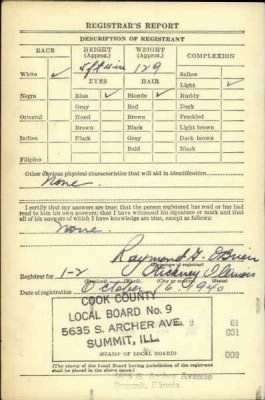 REGISTRAR'S REPORT
DESCRIPTION OF REGISTRANT
RACE HEIGHT (Approx.) WEIGHT (Approx.) COMPLEXION
5 ft 129
White ✓ EYES HAIR Sallow
Light ✓
Negro Blue ✓ Blonde ✓ Ruddy
Gray Red Dark
Oriental Hazel Brown Freckled
Brown Black Light brown
Indian Black Gray Dark brown
Bald Black
Filipino
Other obvious physical characteristics that will aid in identification
None.
I certify that my answers are true; that the person registered has read or has had
read to him his own answers; that I have witnessed his signature or mark and that
all of his answers of which I have knowledge are true, except as follows:
None.
Raymond O'Brien
(Signature of registrar)
Registrar for 1-2 Stickney Illinois
(Precinct) (Ward) (City or county) (State)
Date of registration October 16, 1940
COOK COUNTY
LOCAL BOARD No. 9
5635 S. ARCHER AVE.
SUMMIT, ILL
61
031
003
(STAMP OF LOCAL BOARD)
(The stamp of the Local Board having jurisdiction of the registrant
shall be placed in the above space.)
S. Archer Avenue
Summit, Illinois